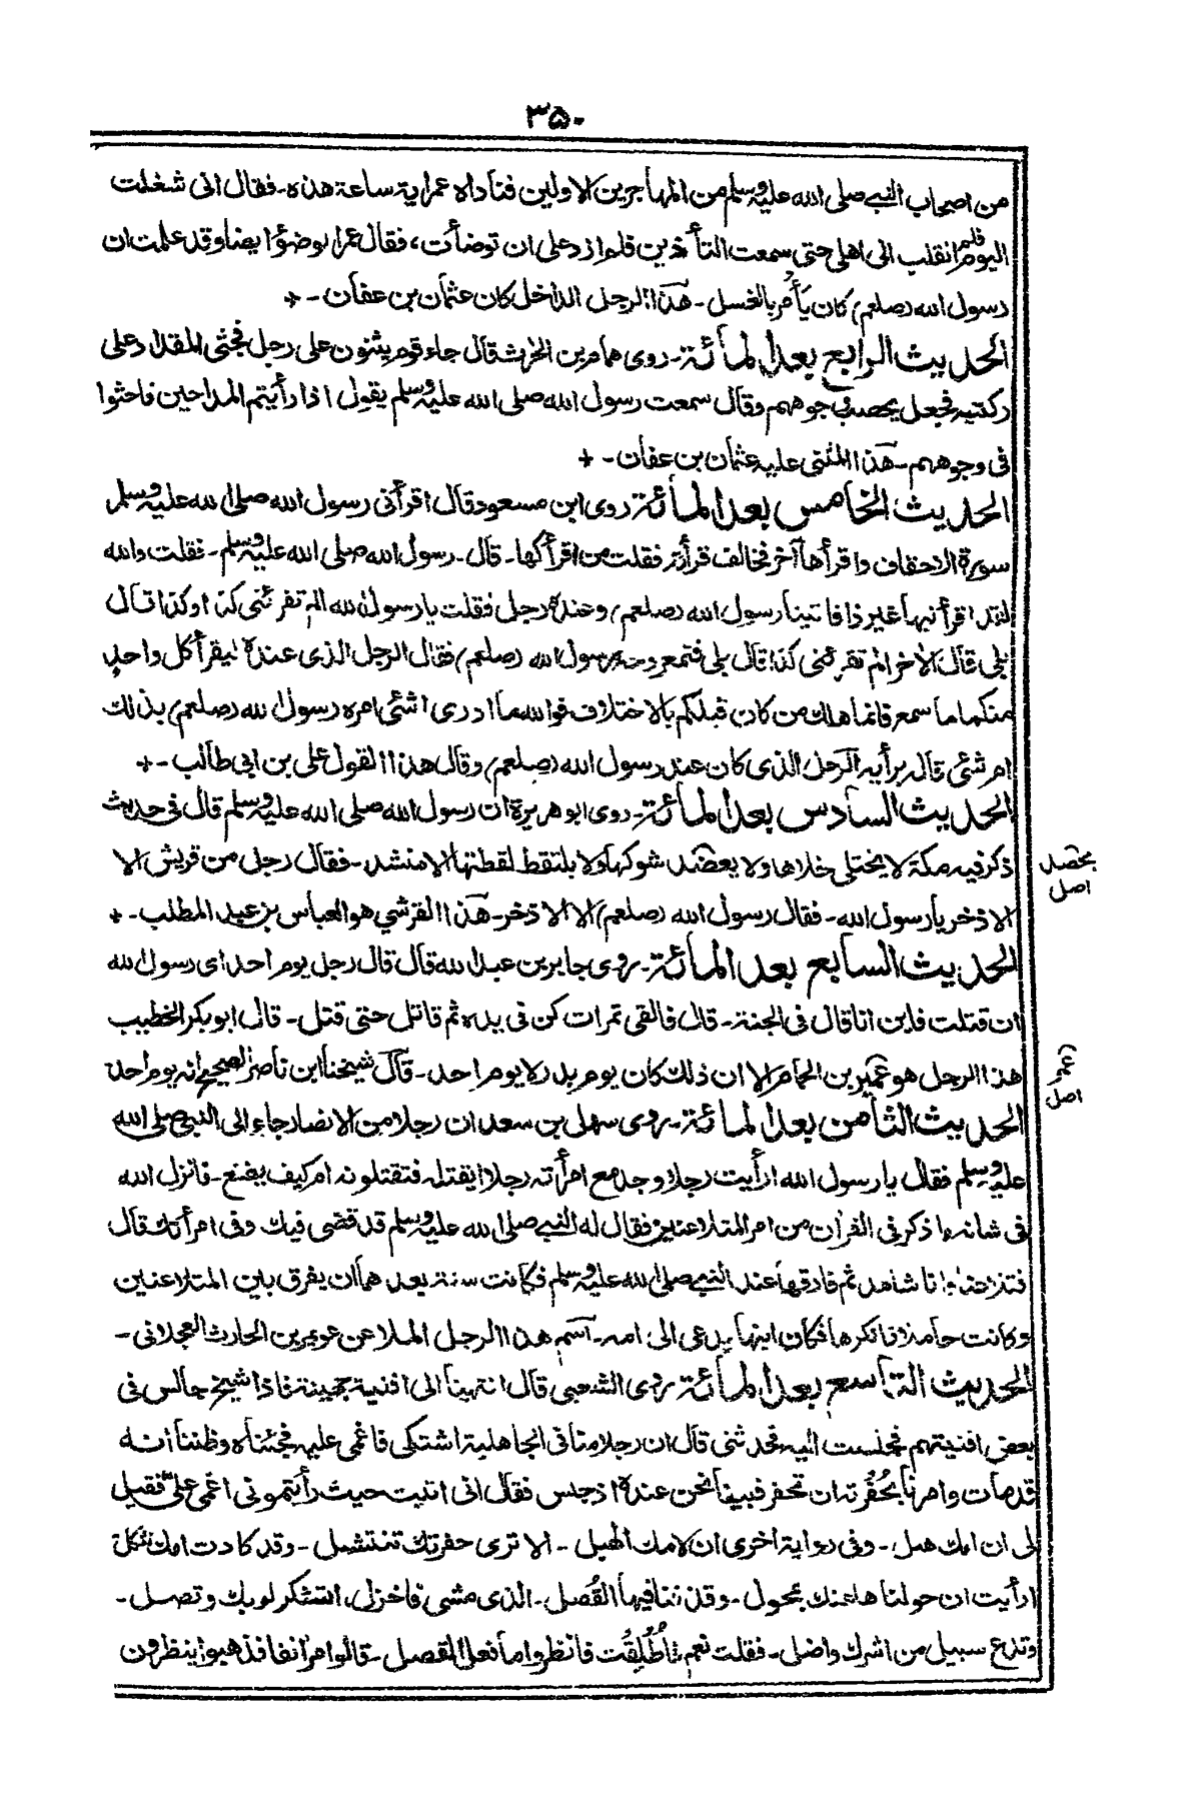 ۳۵۰
من اصحاب النبي صلى الله عليه وسلم من المهاجرين الاولين فناداه عمر اية ساعة هذه۔ فقال انى شغلت
اليوم فلم انقلب الى اهلى حتى سمعت التأذين فلم ازد على ان توضأت، فقال عمر الوضؤ ايضا وقد علمت ان
رسول الله (صلعم) كان يأمر بالغسل۔ هذا الرجل الداخل كان عثمان بن عفان۔ +
الحديث الرابع بعد المأئة۔ روى همام بن الحراث قال جاء قوم يثنون على رجل فجثى المقداد على
ركتبيه فجعل يحصب فى جوههم وقال سمعت رسول الله صلى الله عليه وسلم يقول اذا رأيتم المداحين فاحثوا
فى وجوههم۔ هذا المثنى عليه عثمان بن عفان۔ +
الحديث الخامس بعد المأئة روى ابن مسعود قال اقرأنى رسول الله صلى الله عليه وسلم
سورة الاحقاف واقرأها آخر فخالف قرأته فقلت من اقرأكها۔ قال۔ رسول الله صلى الله عليه وسلم۔ فقلت والله
لقد اقرأنيها غير ذا فاتينا رسول الله (صلعم) وعنده رجل فقلت يا رسول الله الم تقرئنى كذا وكذا قال
بلى قال الأخر الم تقرئنى كذا قال بلى فتمعر وجه رسول الله (صلعم) فقال الرجل الذى عنده ليقرأ كل واحد
منكما ما سمع فانما هلك من كان قبلكم بالاختلاف فوالله ما ادرى اشئى امره رسول الله (صلعم) بذلك
ام شئى قاله برأيه الرجل الذى كان عند رسول الله (صلعم) وقال هذا القول على بن ابى طالب۔ +
الحديث السادس بعد المأئة۔ روى ابو هريرة ان رسول الله صلى الله عليه وسلم قال فى حديث
ذكر فيه مكة لا يختلى خلاها ولا يعضد شوكها ولا يلتقط لقطتها الا منشد۔ فقال رجل من قريش الا
الاذخر يا رسول الله۔ فقال رسول الله (صلعم) الا الاذخر۔ هذا القرشي هو العباس بن عبد المطلب۔ +
الحديث السابع بعد المأئة۔ روى جابر بن عبد الله قال قال رجل يوم احد اى رسول الله
ان قتلت فاين انا قال فى الجنة۔ قال فالقى تمرات كن فى يده ثم قاتل حتى قتل۔ قال ابو بكر الخطيب
هذا الرجل هو عمير بن الحمام الا ان ذلك كان يوم بدر لا يوم احد۔ قال شيخنا ابن ناصر الصحيح انه يوم احد
الحديث الثامن بعد المأئة۔ روى سهل بن سعد ان رجلا من الانصار جاء الى النبي صلى الله
عليه وسلم فقال يا رسول الله ارأيت رجلا وجد مع امرأته رجلا ايقتله فتقتلونه ام كيف يصنع۔ فانزل الله
فى شانه ما ذكر فى القرأن من امر المتلاعنين فقال له النبي صلى الله عليه وسلم قد قضى فيك وفى امرأتك قال
فتلاعنا وانا شاهد ثم فارقها عند النبي صلى الله عليه وسلم فكانت سنة بعد هما ان يفرق بين المتلاعنين
وكانت حاملا فانكرها فكان ابنها يدعى الى امه۔ اسم هذا الرجل الملاعن عويمر بن الحارث العجلانى۔
الحديث التاسع بعد المأئة روى الشعبى قال انتهينا الى افنية جهينة فاذا شيخ جالس فى
بعض افنيتهم فجلست اليه فحدثنى قال ان رجلا منا فى الجاهلية اشتكى فاغمى عليه فجئناه وظننا انه
قد مات وامرنا بحفرته ان تحفر فبينا نحن عنده اذ جلس فقال انى اتيت حيث رأيتمونى اغمى علىّ فقيل
لى ان امك هبل۔ وفى رواية اخرى ان لامك الهبل۔ الا ترى حفرتك تنتثل۔ وقد كادت امك تثكل
ارأيت ان حولنا ها عنك بمحول۔ وقذ فنا فيها القُصَل۔ الذى مشى فاخزل، اتشكر لربك وتصل۔
وتدع سبيل من اشرك واضل۔ فقلت نعم، فاُطْلِقْت فانظروا ما فعل القصل۔ قالوا مرّ انفا فذهبوا ينظرون
بحضد
اصل
اصل